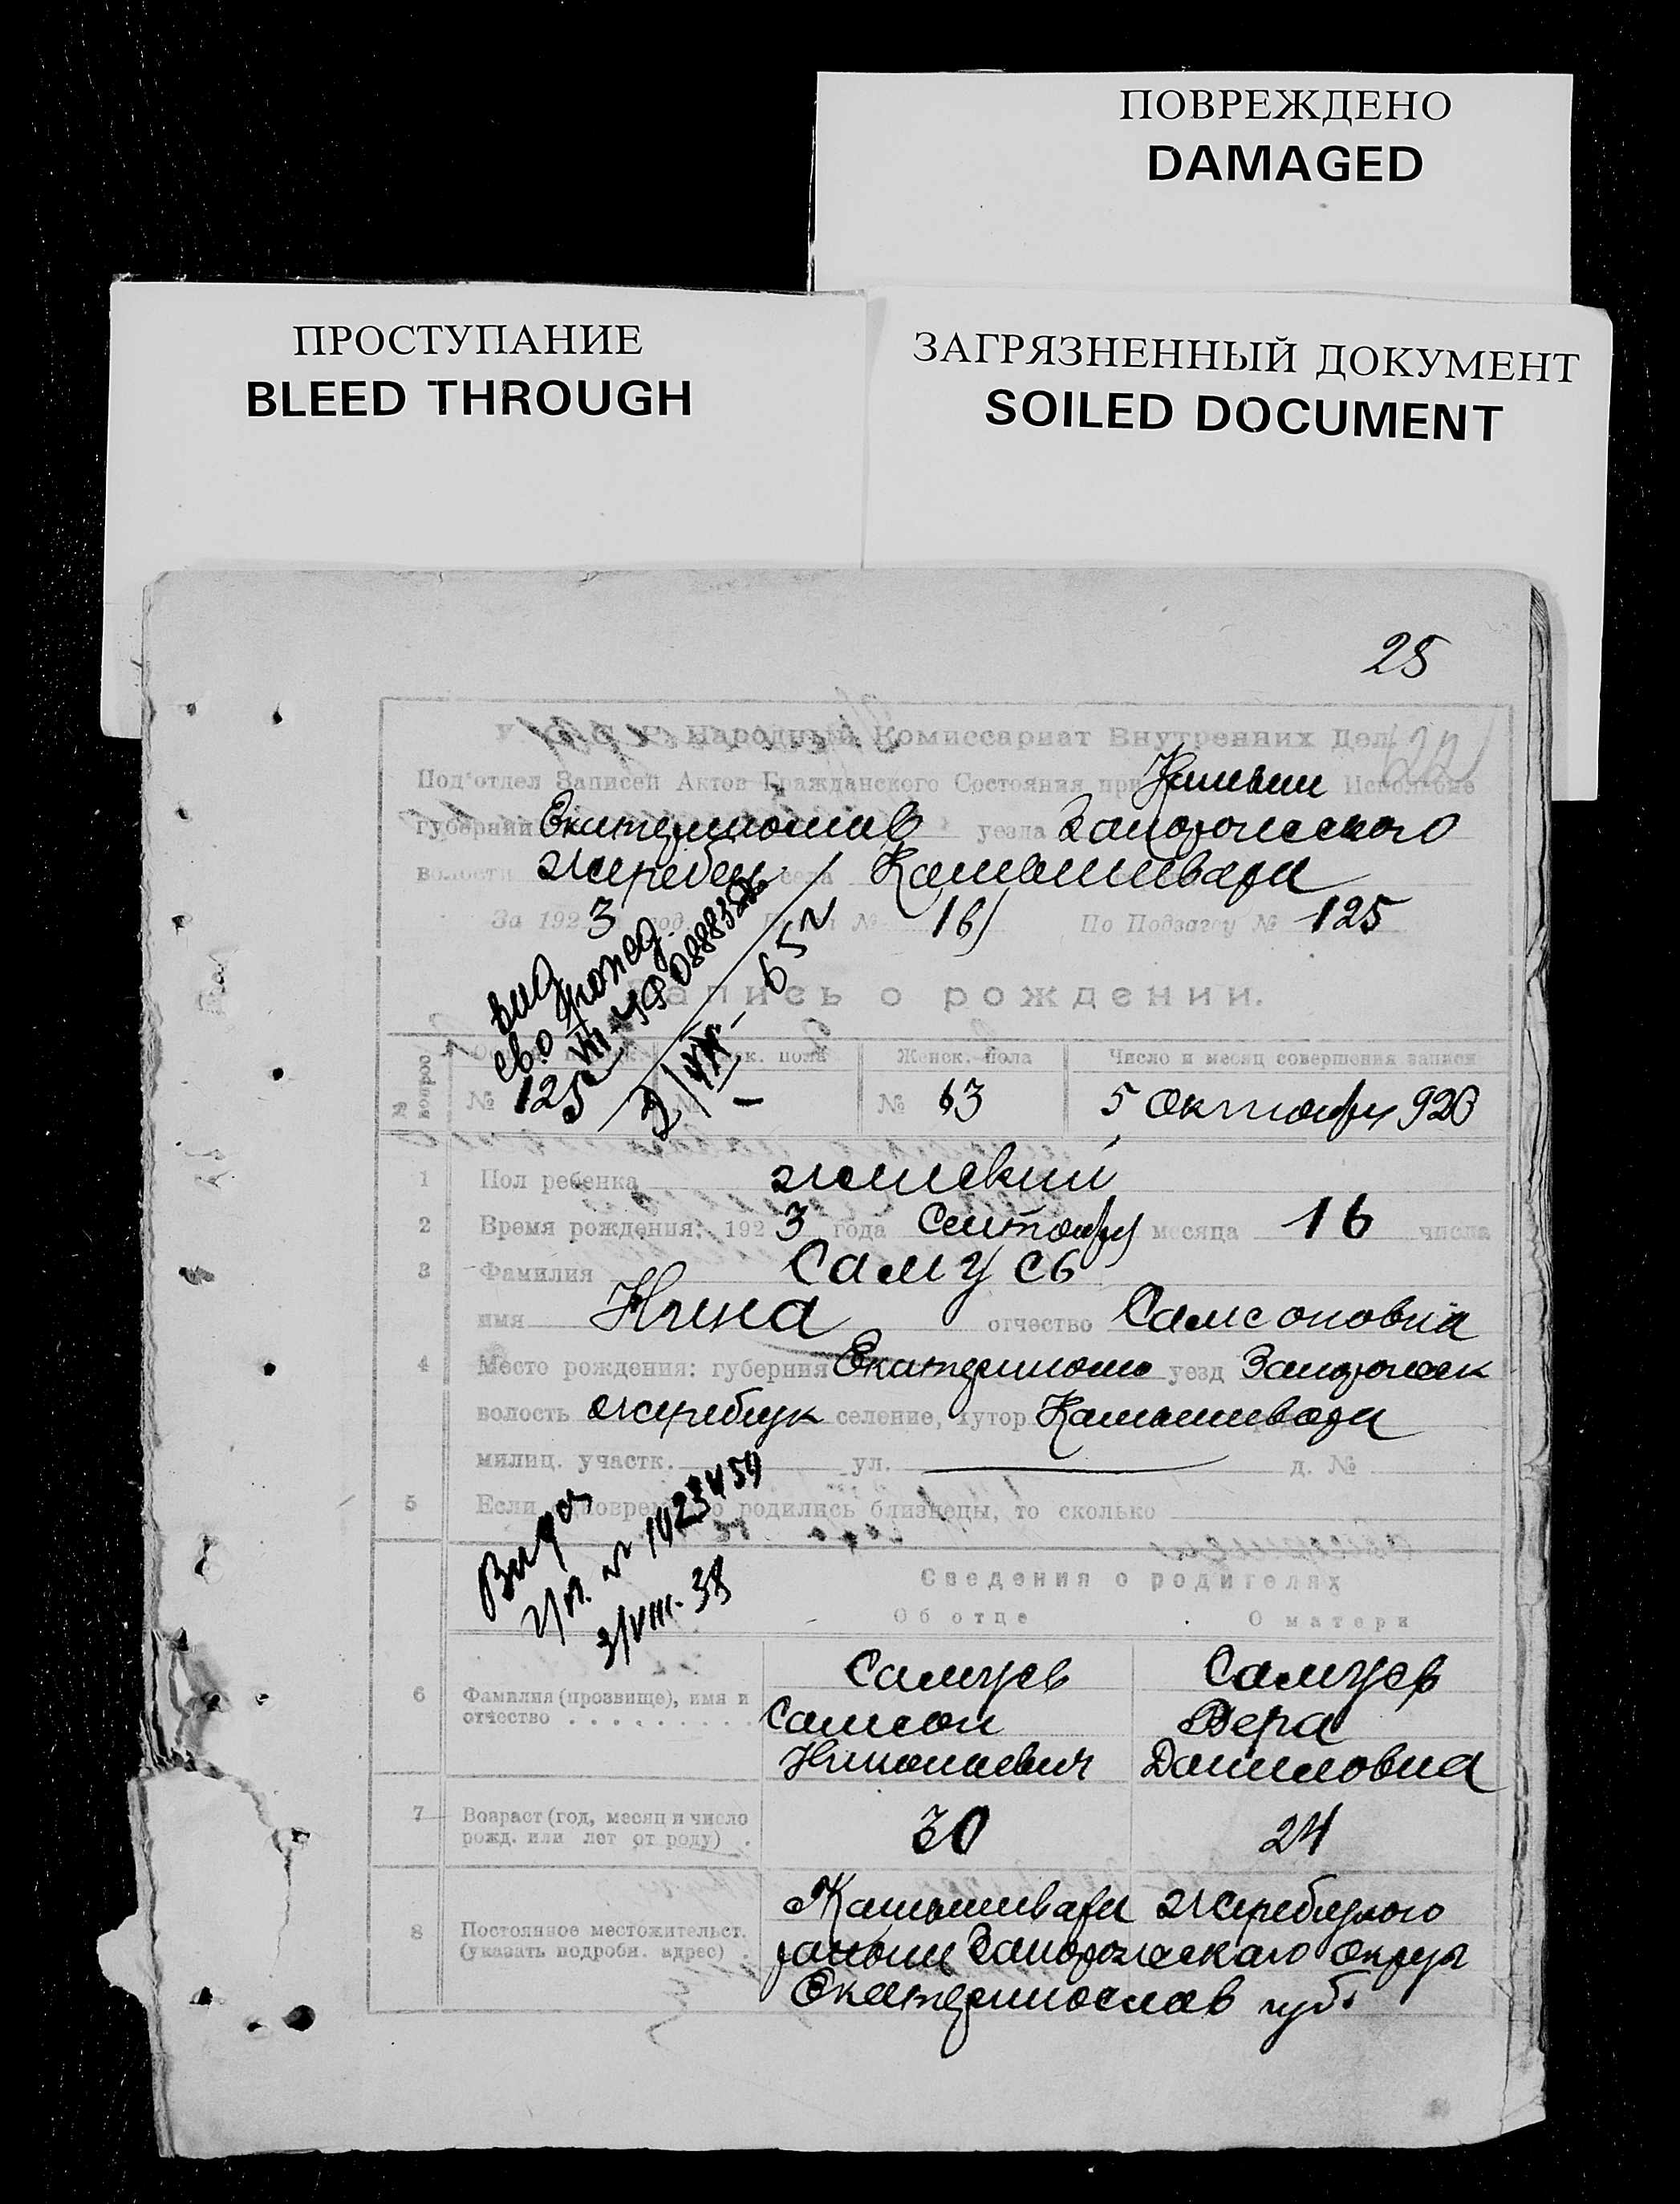 ПОВРЕЖДЕНО
DAMAGED
ПРОСТУПАНИЕ
BLEED THROUGH
ЗАГРЯЗНЕННЫЙ ДОКУМЕНТ
SOILED DOCUMENT
25
Народный Комиссариат Внутренних Дел
Под'отдел Записей Актов Гражданского Состояния при
губернии Екатеринослав уезда Запорожского
волости жеребец села Камышивахи
За 1923 год № 16 По Подзагсу № 125
Запись о рождении.
№ вопрос пола Женск. пола Число и месяц совершения записи
№ 125 № — № 63 5 Октября 923
1 Пол ребенка женский
2 Время рождения: 1923 года Сентября месяца 16 числа
3 Фамилия Самусь
имя Нина отчество Самсоновна
4 Место рождения: губерния Екатериносл уезд Запорожск
волость жеребцк селение, хутор Камышивахи
милиц. участк. ул. — д. №
5 Если одновременно родились близнецы, то сколько
Выда
№ 1023459
3/VIII-38
Сведения о родителях
Об отце О матери
6 Фамилия (прозвище), имя и отчество
Самусь Самусь
Самсон Вера
Николаевич Даниловна
7 Возраст (год, месяц и число рожд. или лет от роду) 30 24
8 Постоянное местожительст. (указать подробн. адрес)
Камышивахи жеребецкого
района Запорожскаго округа
Екатеринослав губ.